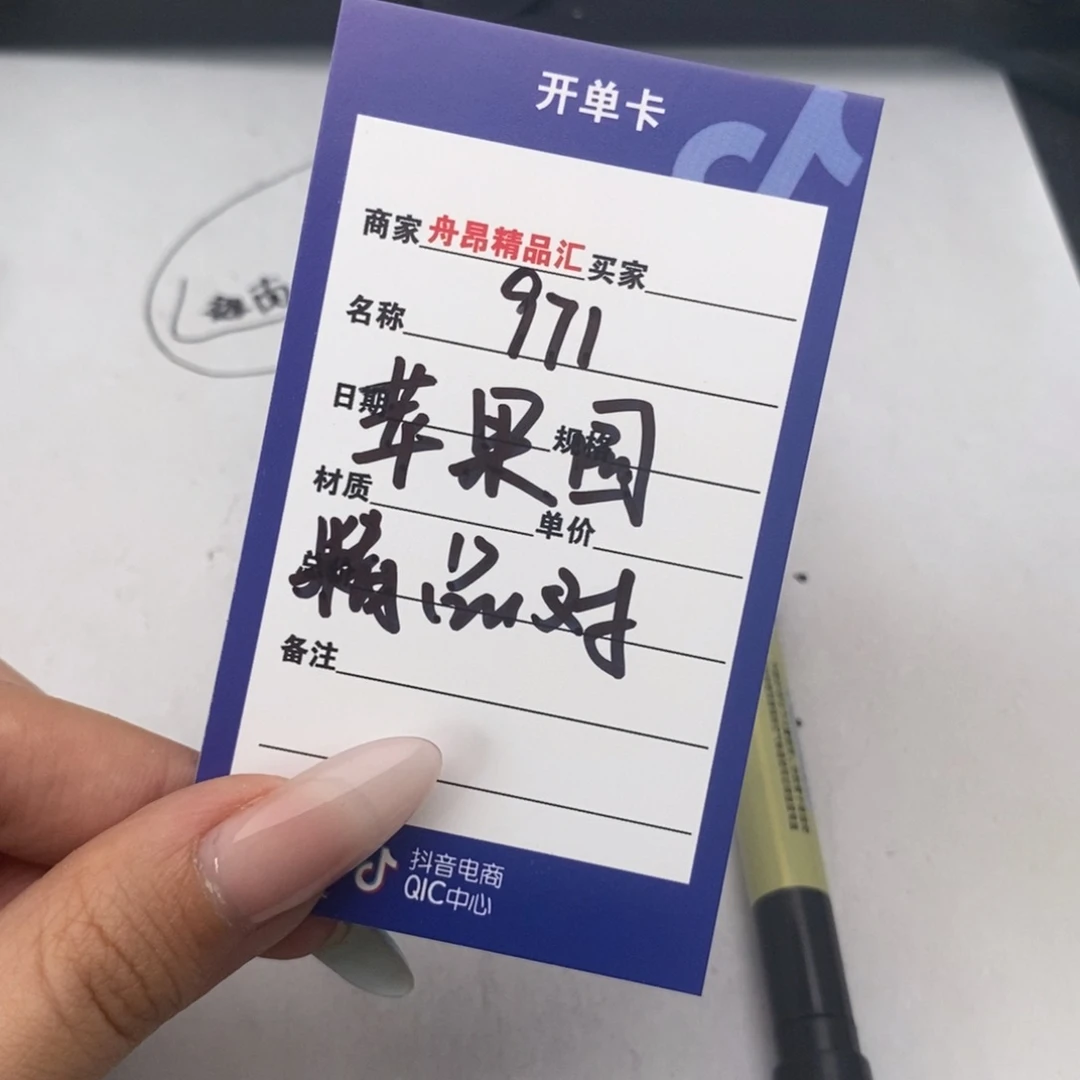 开单卡
商家 舟昂精品汇 买家
名称 971
日期 规格
苹果园
材质 单价
精品对
备注
抖音电商
QIC中心